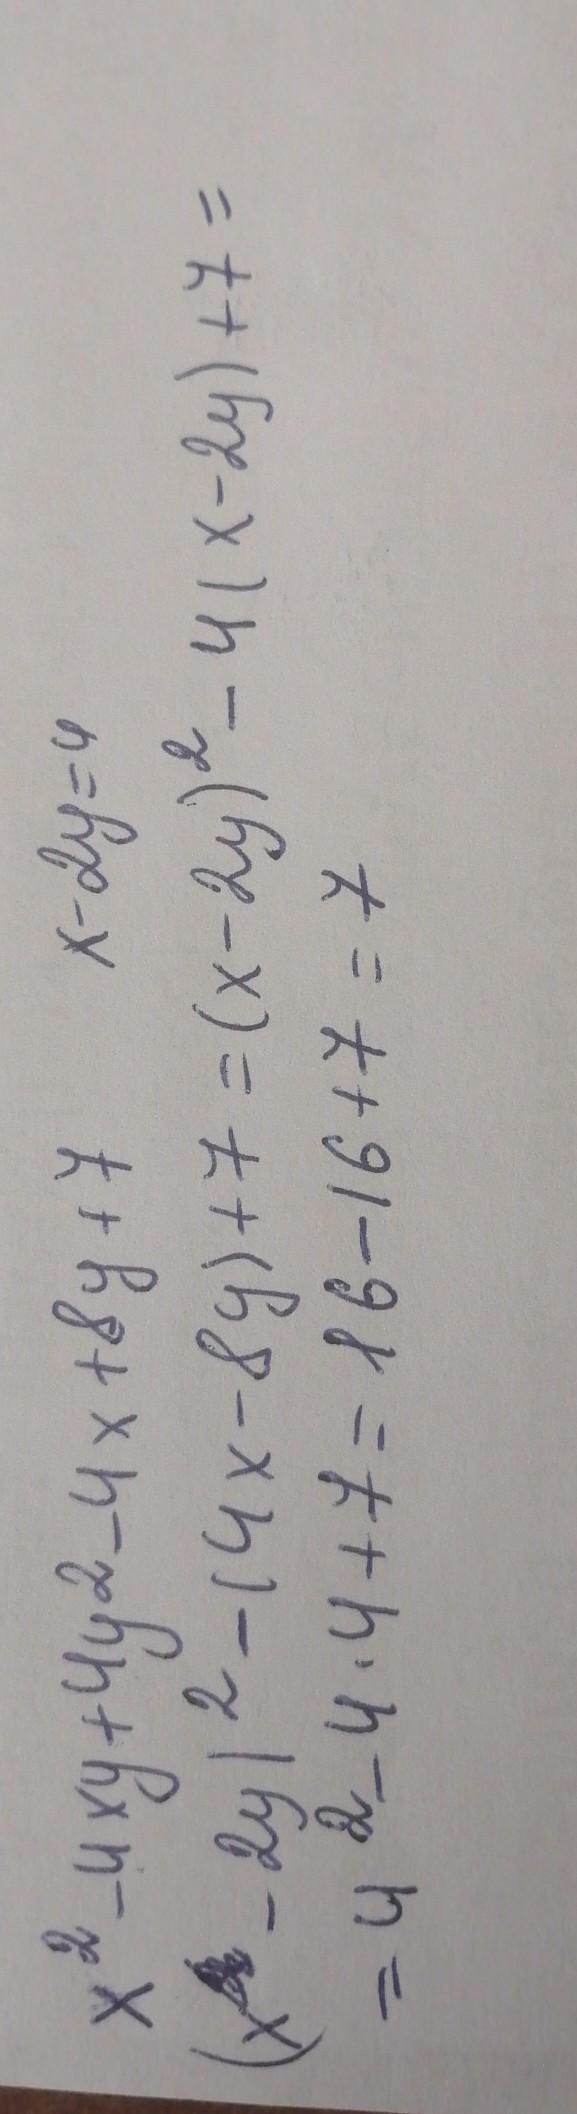 x² - 4xy + 4y² - 4x + 8y + 7   x - 2y = 4
(x - 2y)² - (4x - 8y) + 7 = (x - 2y)² - 4(x - 2y) + 7 =
= 4² - 4 · 4 + 7 = 16 - 16 + 7 = 7